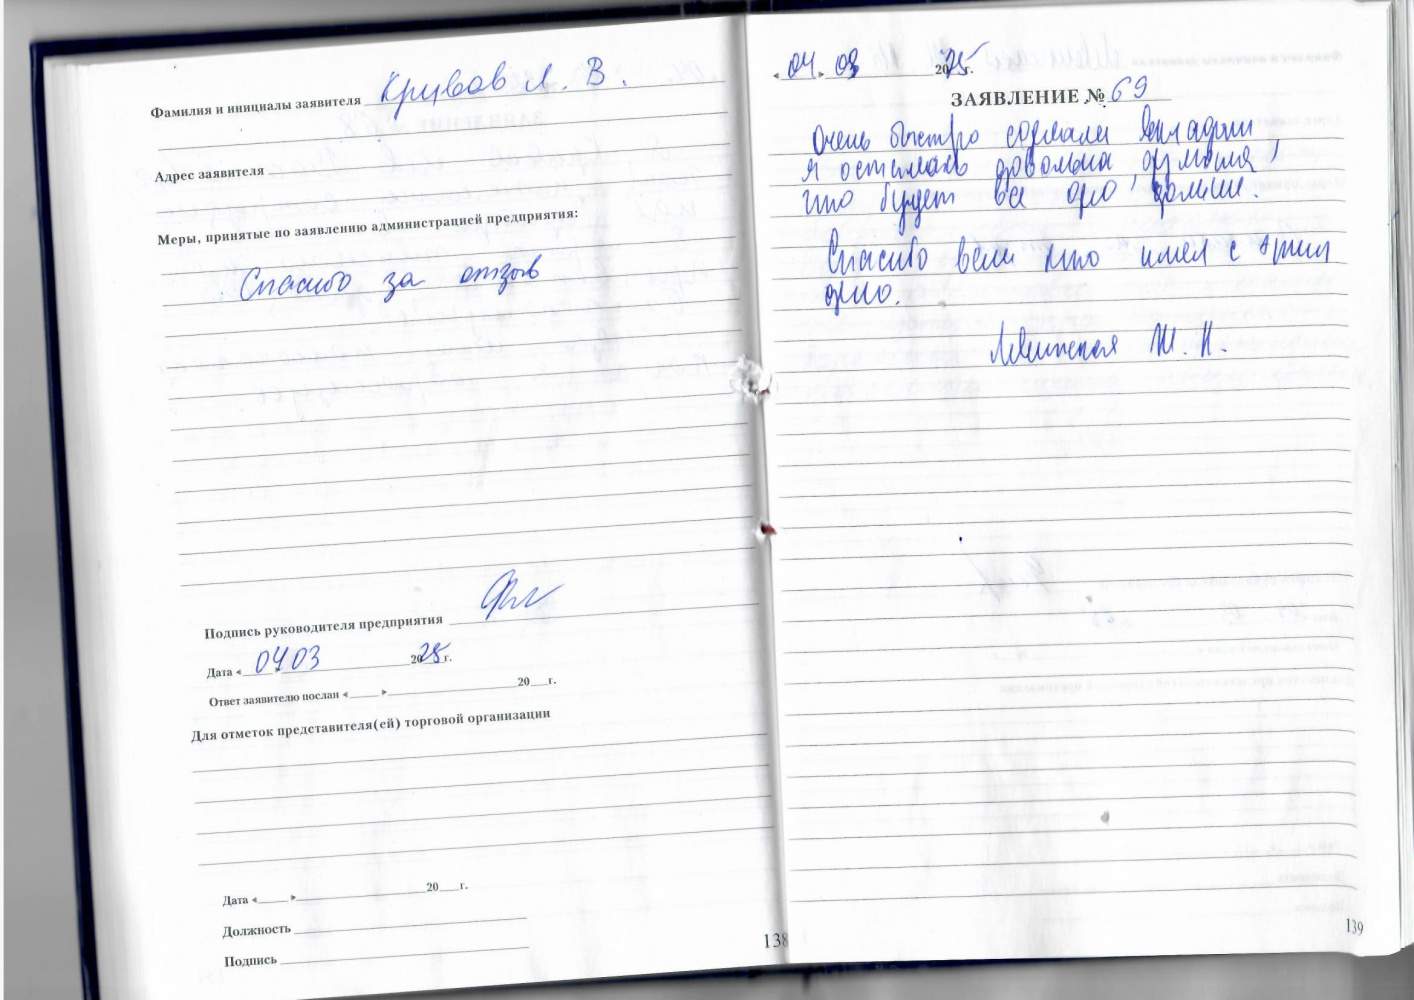 Фамилия и инициалы заявителя Крывов Л. В.
Адрес заявителя
Меры, принятые по заявлению администрацией предприятия:
Спасибо за отзыв
Подпись руководителя предприятия
Дата « 04 03 2025 г.
Ответ заявителю послан « » 20 г.
Для отметок представителя(ей) торговой организации
Дата « » 20 г.
Должность
Подпись
138
« 04 » 03 2025 г.
ЗАЯВЛЕНИЕ № 69
Очень быстро сделали
я осталась довольна, думала,
что будет все дольше.
Спасибо всем кто имел с этим
дело.
Ж. Н.
139